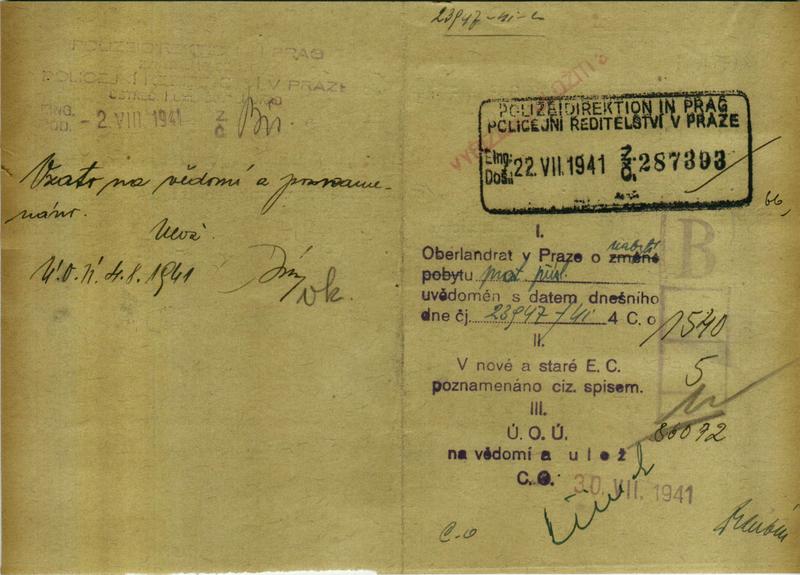 POLIZEIDIREKTION IN PRAG
POLICEJNÍ ŘEDITELSTVÍ V PRAZE
EING.
DOD. -2. VIII 1941 Z. Č.
Vzato na vědomí a pozname-
náno.
Ú.O.Ú. 4.8. 1941
23947-41-C
POLIZEIDIREKTION IN PRAG
POLICEJNÍ ŘEDITELSTVÍ V PRAZE
Eing.
Došlí 22. VII. 1941 Z. Č. 287393
66,
I.
Oberlandrat v Praze o nabytí změně
pobytu prot. přísl.
uvědoměn s datem dnešního
dne čj. 23947-41 4 C. o
B
1540
II.
V nové a staré E. C.
poznamenáno ciz. spisem.
5
III.
Ú. O. Ú.
86092
na vědomí a ulož
C. O.
30. VII. 1941
C.O